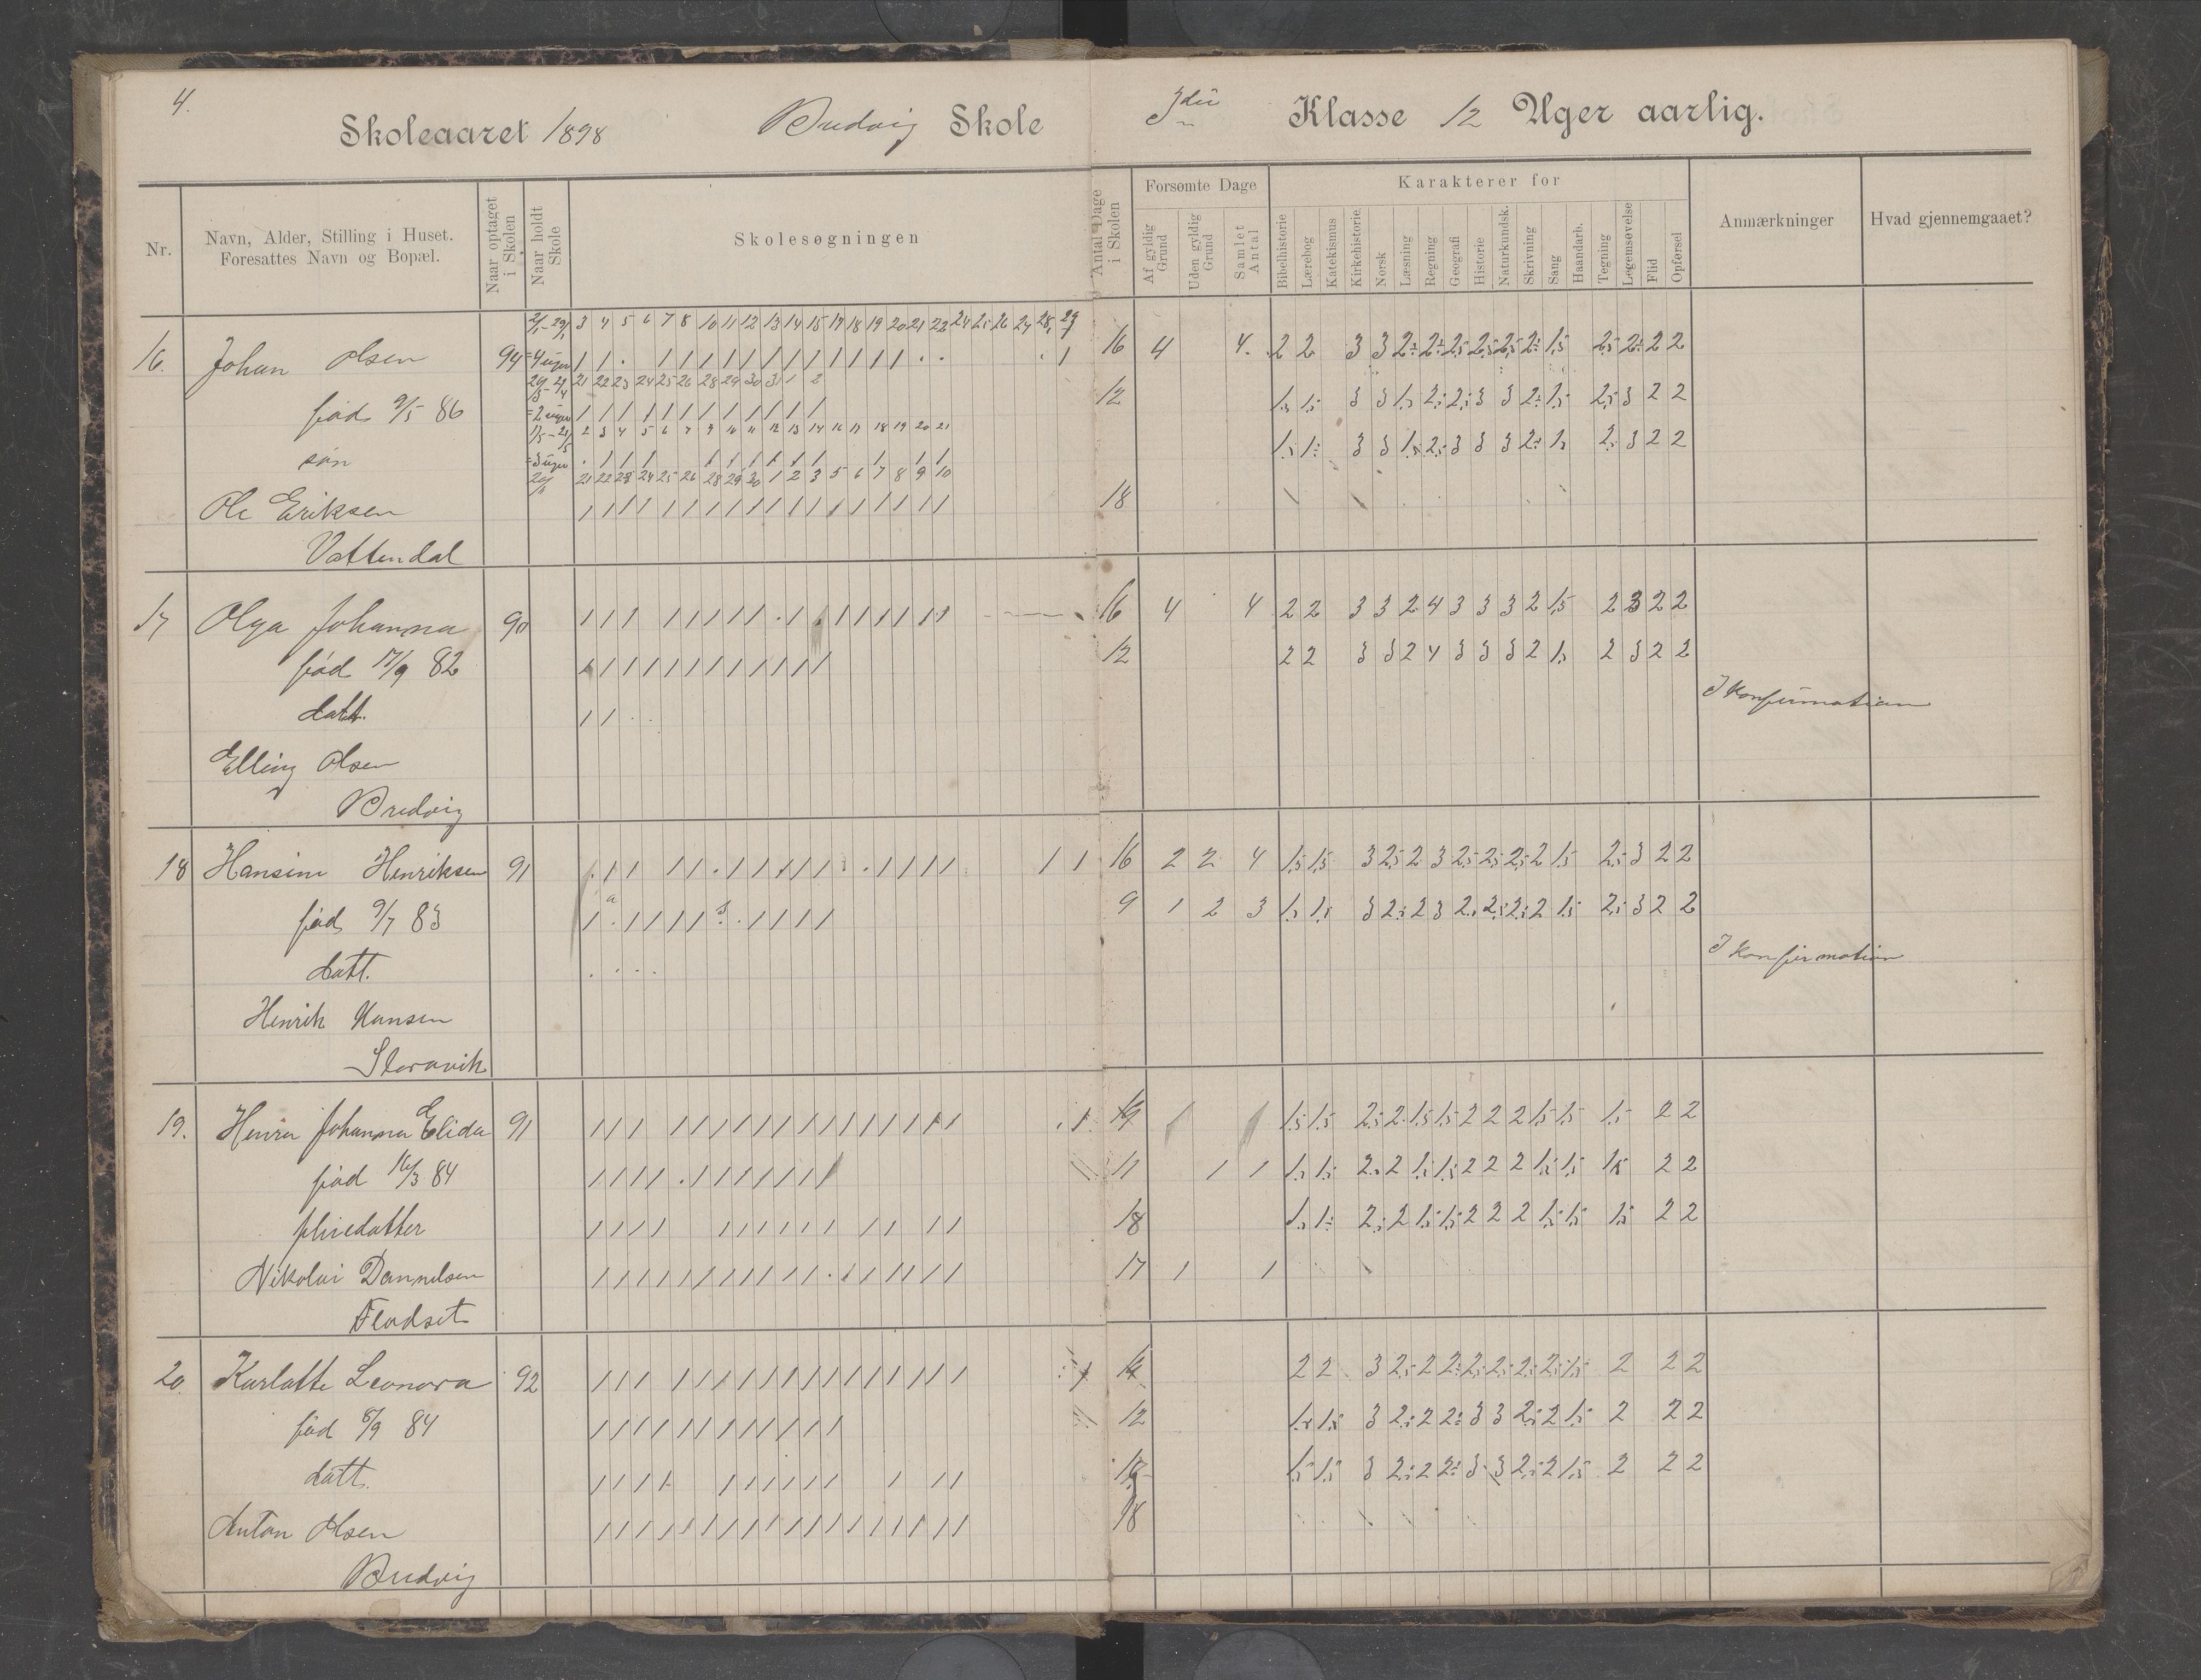 4.
Skoleaaret 1898 Bredvig Skole 3die Klasse 12 Uger aarlig.
Nr.
Navn, Alder, Stilling i Huset.
Foresattes Navn og Bopæl.
Naar optaget i Skolen
Naar holdt Skole
Skolesøgningen
Antal Dage i Skolen
Forsømte Dage
Af gyldig Grund
Uden gyldig Grund
Samlet Antal
Karakterer for
Bibelhistorie
Lærebog
Katekismus
Kirkehistorie
Norsk
Læsning
Regning
Geografi
Historie
Naturkundsk.
Skrivning
Sang
Haandarb.
Tegning
Legemsøvelse
Flid
Opførsel
Anmærkninger
Hvad gjennemgaaet?
3 4 5 6 7 8 10 11 12 13 14 15 17 18 19 20 21 22 24 25 26 27 28 29
16. Johan Olsen 94 = 4 uger 16 4 4.
21 22 23 24 25 26 28 29 30 31 1 2
12
fød 9/5 86 = 2 uger
2 3 4 5 6 7 9 10 11 12 13 14 16 17 18 19 20 21
søn = 3 uger
21 22 23 24 25 26 28 29 30 1 2 3 5 6 7 8 9 10
Ole Eriksen 18
Vattendal
17 Olga Johanna 90 16 4 4 2 2 3 3 2 4 3 3 3 2 1,5 2 3 2 2
fød 17/9 82 12 2 2 3 3 2 4 3 3 3 2 1,5 2 3 2 2
datt. I Konfirmation
Elling Olsen
Bredvig
18 Hansine Henriksen 91 16 2 2 4 1,5 1,5 3 2,5 2 3 2,5 2,5 2,5 2 1,5 2,5 3 2 2
fød 9/7 83 9 1 2 3 1,5 1,5 3 2,5 2 3 2,5 2,5 2,5 2 1,5 2,5 3 2 2
datt. I Konfirmation
Henrik Hansen
Storavik
19. Henra Johanna Elida 91 19 1 1 1,5 1,5 2,5 2 1,5 1,5 2 2 2 1,5 1,5 1,5 2 2
fød 16/3 84 11 1 1 1,5 1,5 2,5 2 1,5 1,5 2 2 2 1,5 1,5 1,5 2 2
pleiedatter 18 1,5 2,5 2 1,5 1,5 2 2 2 1,5 1,5 1,5 2 2
Nikolai Dannelsen 17 1 1
Flodset
20. Karlotte Leonora 92 2 2 3 2,5 2 2 2,5 2,5 2,5 2,5 1,5 2 2 2
fød 8/9 84 12 1,5 1,5 3 2,5 2 2 3 3 2,5 2 1,5 2 2 2
datt. 1,5 1,5 3 2,5 2 2 3 3 2,5 2 1,5 2 2 2
Anton Olsen 18
Bredvig